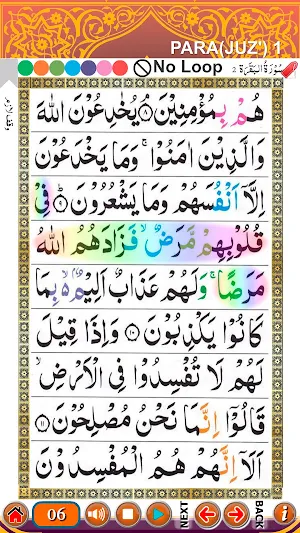 PARA(JUZ') 1
No Loop
هُمْ بِمُؤْمِنِيْنَ ۝٨ يُخٰدِعُوْنَ اللّٰهَ
وَالَّذِيْنَ اٰمَنُوْا ۚ وَمَا يَخْدَعُوْنَ
اِلَّآ اَنْفُسَهُمْ وَمَا يَشْعُرُوْنَ ۝٩ فِيْ
قُلُوْبِهِمْ مَّرَضٌ ۙ فَزَادَهُمُ اللّٰهُ
مَرَضًا ۚ وَلَهُمْ عَذَابٌ اَلِيْمٌ ۢ ۙ بِمَا
كَانُوْا يَكْذِبُوْنَ ۝١٠ وَاِذَا قِيْلَ
لَهُمْ لَا تُفْسِدُوْا فِي الْاَرْضِ ۙ
قَالُوْٓا اِنَّمَا نَحْنُ مُصْلِحُوْنَ ۝١١
اَلَآ اِنَّهُمْ هُمُ الْمُفْسِدُوْنَ
06
NEXT
BACK
i